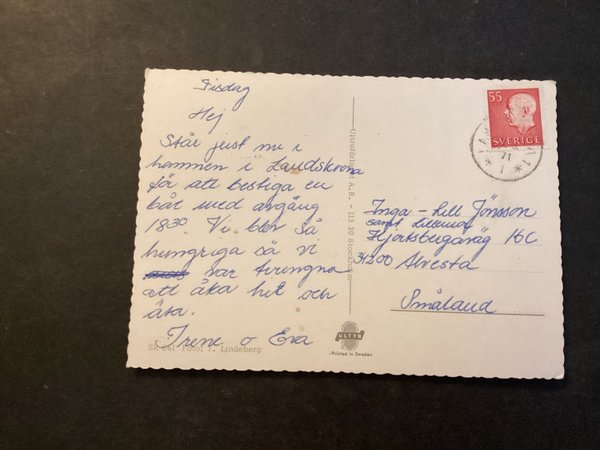 Tisdag
Hej
Står just nu i
hamnen i Landskrona
för att bestiga en
båt med avgång
1830 Vi blev så
hungriga så vi
var tvungna
att åka hit och
äta.
Irene o Eva
Foto: Lindeberg
A.B. - 113 30 Stockholm
ULTRA
-Printed in Sweden
55
SVERIGE
71
Inga-Lill Jönsson
samt Lillemor
Hjortsbergaväg 16C
34200 Alvesta
Småland